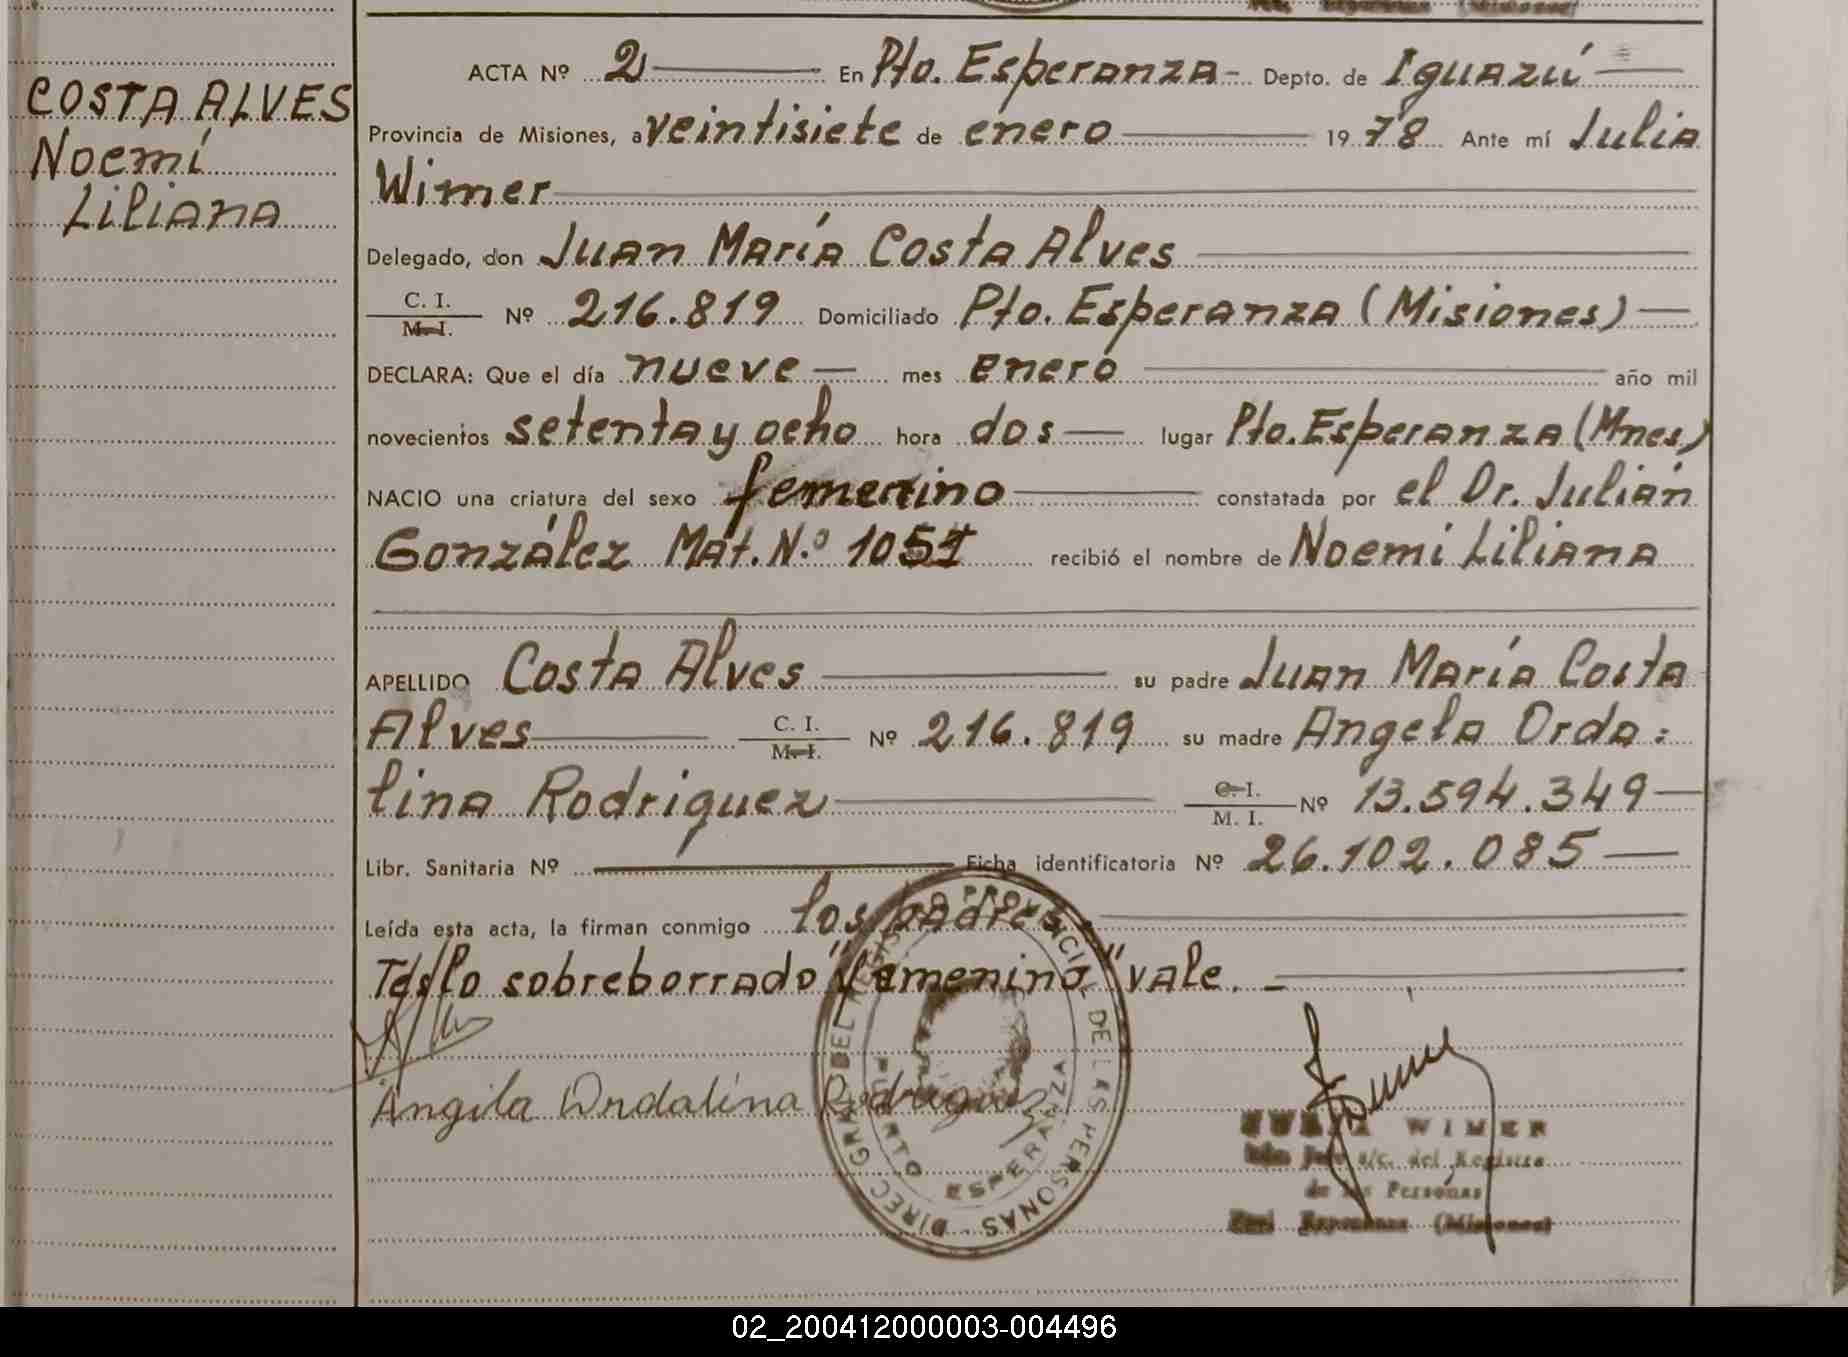 COSTA ALVES
Noemí
Liliana
ACTA Nº 2 En Pto. Esperanza- Depto. de Iguazú
Provincia de Misiones, a veintisiete de enero 1978 Ante mí Julia
Wimer
Delegado, don Juan María Costa Alves
C. I.
M. I. Nº 216.819 Domiciliado Pto. Esperanza (Misiones)
DECLARA: Que el día nueve mes enero año mil
novecientos setenta y ocho hora dos lugar Pto. Esperanza (Mnes)
NACIO una criatura del sexo femenino constatada por el Dr. Julián
González Mat. N.º 1051 recibió el nombre de Noemí Liliana
APELLIDO Costa Alves su padre Juan María Costa
Alves C. I.
M. I. Nº 216.819 su madre Angela Orda:
lina Rodriguez C. I.
M. I. Nº 13.594.349
Libr. Sanitaria Nº Ficha identificatoria Nº 26.102.085
Leída esta acta, la firman conmigo los padres.
sobreborrado "femenino" vale.
Angila Ordalina Rodriguez
DIREC GRAL DEL REGISTRO PROVINCIAL DE LAS PERSONAS -
PUERTO ESPERANZA
WIMER
s/c. del Registro
de las Personas
Esperanza (Misiones)
02_200412000003-004496